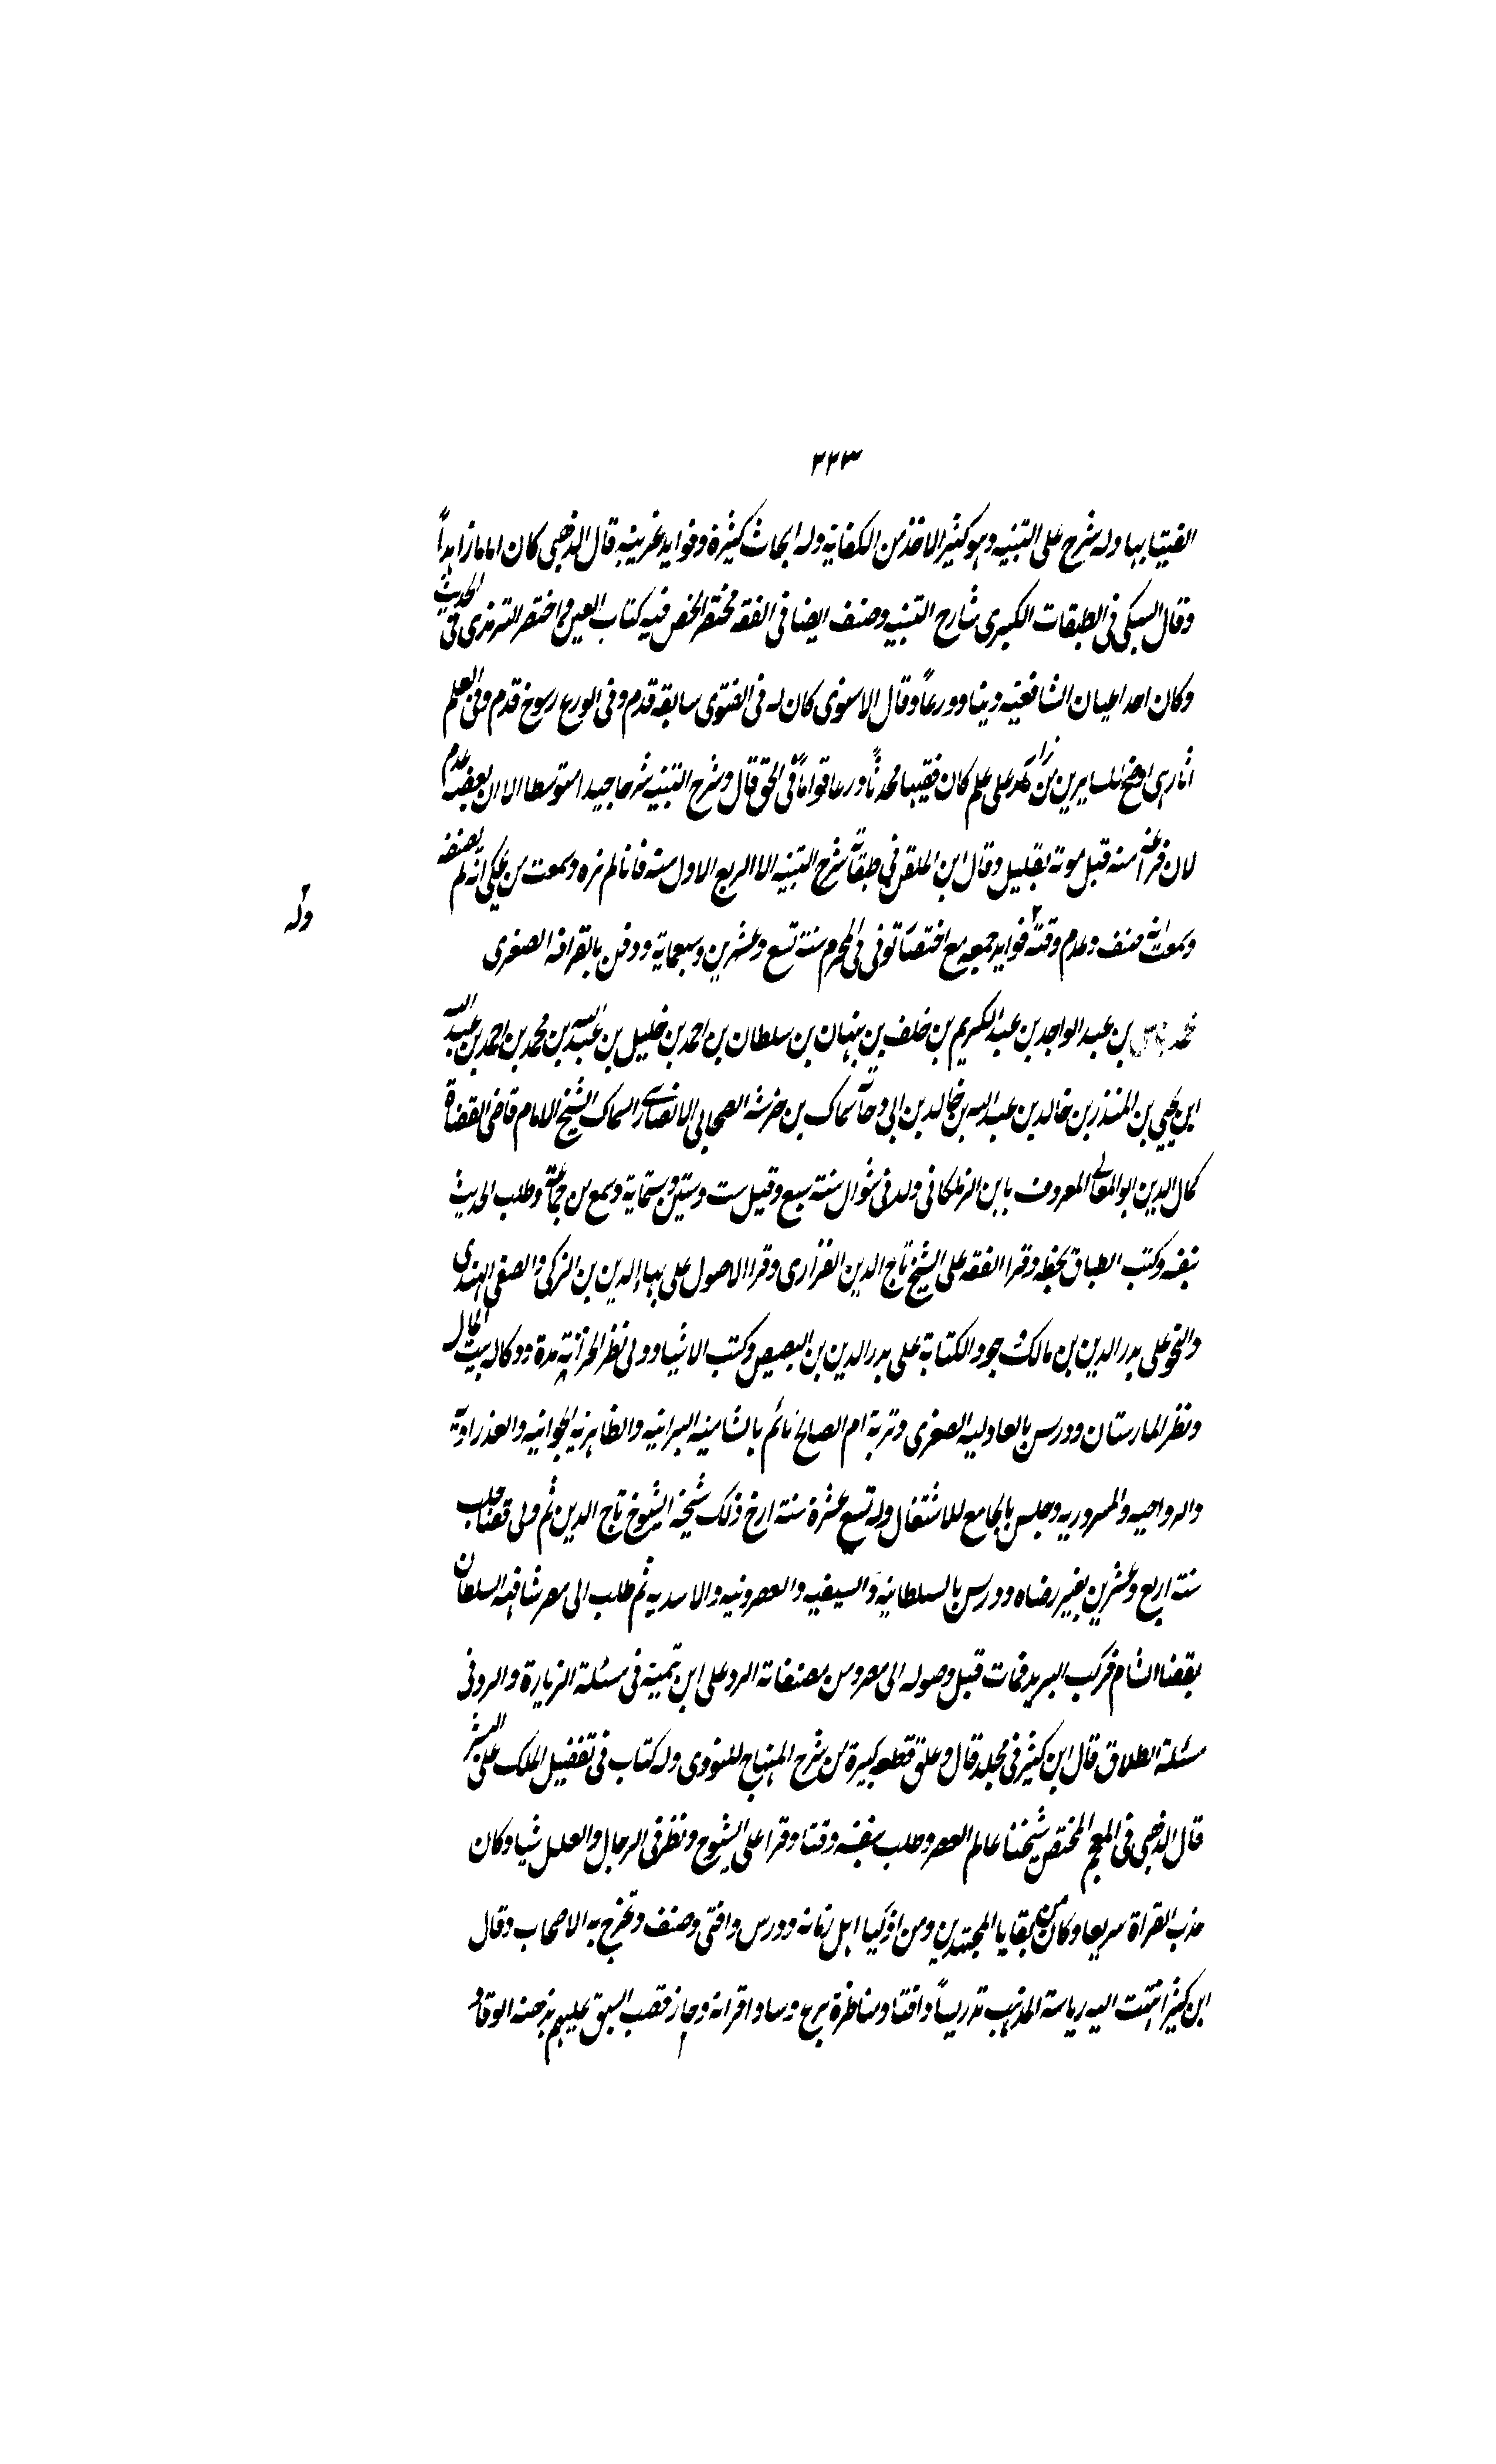 ٣٢٣
الفتيا بها وله شرح على التنبيه وهو كثير الاخذ من الكفاية وله ابحاث كثيرة وفوايد غريبة قال الذهبي كان اماما زاهداً
وقال السبكي في الطبقات الكبرى شارح التنبيه وصنف ايضا في الفقه مختصرا لخص فيه كتاب المعين واختصر الترمذي في الحديث
وكان احد اعيان الشافعيه دينا وورعاً وقال الاسنوي كان له في الفتوى سابقه قدم وفي الورع رسوخ قدم وفي العلم
اثار هي اوضح للسايرين من نار على علم كان فقيها محدثاً ورعا قواماً في الحق قال وشرح التنبيه شرحا جيدا متوسطا الا ان بعضه عدم
لان فراغه منه قبل موته بقليل وقال ابن الملقن في طبقاته شرح التنبيه الا الربع الاول منه فانا لم نره وسمعت من يحكي انه لم يصنفه
وسمعت انه صنف وعدم وقته فوايد جمعه مع اختصاره توفي في المحرم سنة تسع وعشرين وسبعماية ودفن بالقرافه الصغرى
وله
محمد بن علي بن عبد الواحد بن عبد الكريم بن خلف بن نبهان بن سلطان بن احمد بن خليل بن عبد الله بن محمد بن احمد بن عبد الله
ابن يحيي بن المنذر بن خالد بن عبد الله بن خالد بن ابي دجانة سماك بن خرشه الصحابي الانصاري السماكي الشيخ الامام قاضي القضاة
كمال الدين ابو المعالي المعروف بابن الزملكاني ولد في شوال سنة سبع وقيل ست وستين وستماية وسمع من جماعة وطلب الحديث
بنفسه وكتب الطباق بخطه وقرا الفقه على الشيخ تاج الدين الفزاري وقرا الاصول على بهاء الدين بن الزكي والصفي الهندي
والنحو على بدر الدين بن مالك وجود الكتابة على بدر الدين بن البصيص وكتب الانشا وولي نظر الخزانة مدة ووكاله بيت المال
ونظر المارستان ودرس بالعادليه الصغرى وتربة ام الصالح ثم بالشاميه البرانيه والظاهريه الجوانيه والعذراوية
والرواحيه والمسروريه وجلس بالجامع للاشتغال وله تسع عشرة سنة ارخ ذلك شيخه الشيوخ تاج الدين ثم ولي قضا حلب
سنة اربع وعشرين بغير رضاه ودرس بالسلطانيه والسيفيه والعصرونيه والاسديه ثم طلب الى مصر شافهه السلطان
بقضا الشام فركب البريد فمات قبل وصوله الى مصر ومن مصنفاته الرد على ابن تيمية في مسئلة الزيارة والرد في
مسئلة الطلاق قال ابن كثير في مجلد قال وعلق قطعه كبيرة من شرح المنهاج للنووي وله كتاب في تفضيل الملك على البشر
قال الذهبي في المعجم المختص شيخنا عالم العصر وطلب بنفسه وقتا وقرا على الشيوخ ونظر في الرجال والعلل شيا وكان
عذب القراة سريعا وكان من بقايا المجتهدين ومن اذكيا اهل زمانه ودرس وافتى وصنف وتخرج به الاصحاب وقال
ابن كثير انتهت اليه رياسة المذهب تدريساً وافتا ومناظرة برع وساد اقرانه وحاز قصب السبق عليهم بذهنه الوقاد